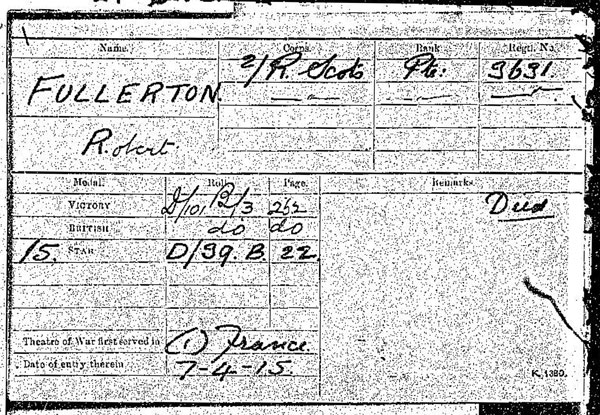 Name. Corps. Rank Regtl. No.
FULLERTON. 2/R. Scots Pte: 9691.
Robert
Medal. Roll. Page. Remarks.
VICTORY D/101 B/3 262 Died
BRITISH do do
15. STAR D/39. B. 22.
Theatre of War first served in (1) France.
Date of entry therein 7-4-15.
K. 1380.